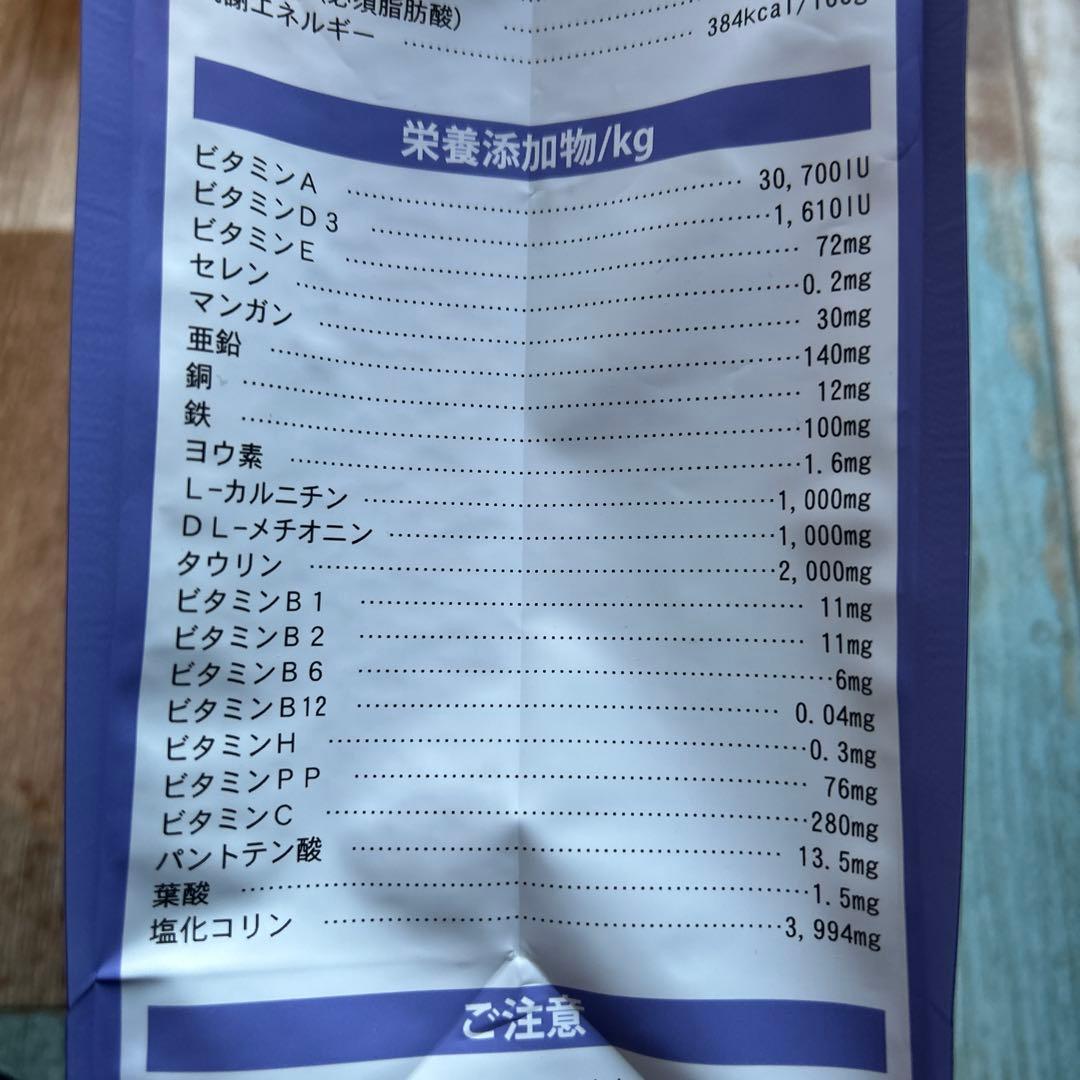 必須脂肪酸)
謝エネルギー ………… 384kcal/100g
栄養添加物/kg
ビタミンA ………… 30,700IU
ビタミンD3 ………… 1,610IU
ビタミンE ………… 72mg
セレン ………… 0.2mg
マンガン ………… 30mg
亜鉛 ………… 140mg
銅 ………… 12mg
鉄 ………… 100mg
ヨウ素 ………… 1.6mg
L-カルニチン ………… 1,000mg
DL-メチオニン ………… 1,000mg
タウリン ………… 2,000mg
ビタミンB1 ………… 11mg
ビタミンB2 ………… 11mg
ビタミンB6 ………… 6mg
ビタミンB12 ………… 0.04mg
ビタミンH ………… 0.3mg
ビタミンPP ………… 76mg
ビタミンC ………… 280mg
パントテン酸 ………… 13.5mg
葉酸 ………… 1.5mg
塩化コリン ………… 3,994mg
ご注意